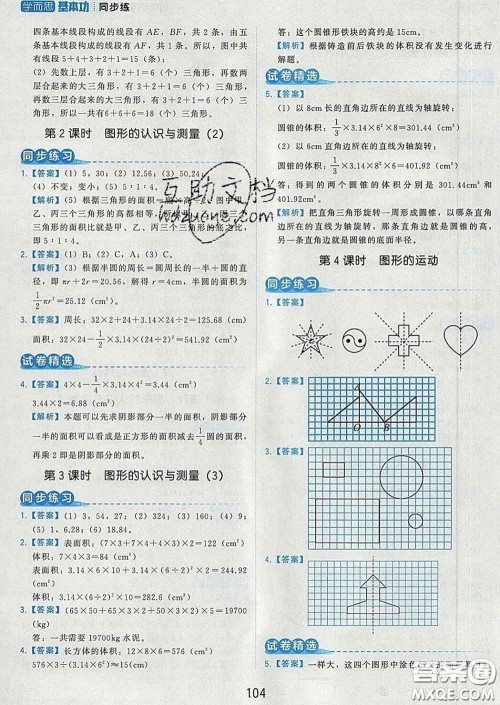 学而思 基本功 同步练
四条基本线段构成的线段有 AE，BF，共 2 条，由五条基本线段构成的线段有 AF，共 1 条。所以一共有 5+4+3+2+1=15（条）
（2）先数上层，有 3+2+1=6（个）三角形，再数两层合起来的大三角形，有 3+2+1=6（个）三角形，所以一共有 6+6+6=18（个）三角形。
第 2 课时 图形的认识与测量（2）
同步练习
1.【答案】（1）5，30；（2）12；（3）50.24；
（4）不变；变小；（5）5∶1∶4。
甲、乙、丙三个三角形的高都相等，
2.【答案】（1）B；（2）C；（3）C。
【解析】（3）根据半圆的周长=圆周长的一半+圆的直径，即 πr+2r=20.56，解得 r=4（cm），半圆的面积为
1/2πr²=25.12（cm²）。
3.【答案】周长：32×2+24+3.14×24÷2=125.68（cm）
面积：32×24-3.14×(24÷2)²÷2=541.92（cm²）
试卷精选
4.【答案】4×4-1/4×3.14×4²=3.44（cm²）
3.44×2=6.88（cm²）
【解析】本题可以先求阴影部分一半的面积，阴影部分一半的面积可以用正方形的面积减去 1/4 圆的面积，再乘 2 即是阴影部分的面积。
第 3 课时 图形的认识与测量（3）
同步练习
1.【答案】（1）3，54，27；（2）324；（3）160；（4）9；
（5）1，6.28；（6）18.84。
2.【答案】表面积：(7×3+7×4+4×3)×2=122（cm²）
体积：7×3×4=84（cm³）
表面积：3.14×6×10+3.14×(6÷2)²×2=244.92（cm²）
体积：3.14×(6÷2)²×10=282.6（cm³）
3.【答案】(65×50+65×3×2+50×3×2)×5=19700（kg）
答：一共需要 19700kg 水泥。
4.【答案】铁块的体积：12×8×6=576（cm³）
576×3÷(3.14×6²)≈15（cm）
答：这个圆锥形铁块的高约是 15cm。
【解析】根据铸造前后铁块的体积没有发生变化进行解题。
试卷精选
5.【答案】
（1）以 8cm 长的直角边所在的直线为轴旋转：
圆锥的体积：1/3×3.14×6²×8=301.44（cm³）
（2）以 6cm 长的直角边所在的直线为轴旋转：
圆锥的体积：1/3×3.14×8²×6=401.92（cm³）
答：得到的两个圆锥的体积分别是 301.44cm³ 和 401.92cm³。
【解析】把直角三角形旋转一周形成圆锥，以哪条直角边所在的直线为轴，哪条直角边就是圆锥的高，另一条直角边就是圆锥的底面半径。
第 4 课时 图形的运动
同步练习
1.【答案】
2.【答案】
A
O
B
3.【答案】
4.【答案】
试卷精选
5.【答案】一样大，这四个图形中涂色
104
互助文档
huzuone.com
答案圈
MXQE.COM